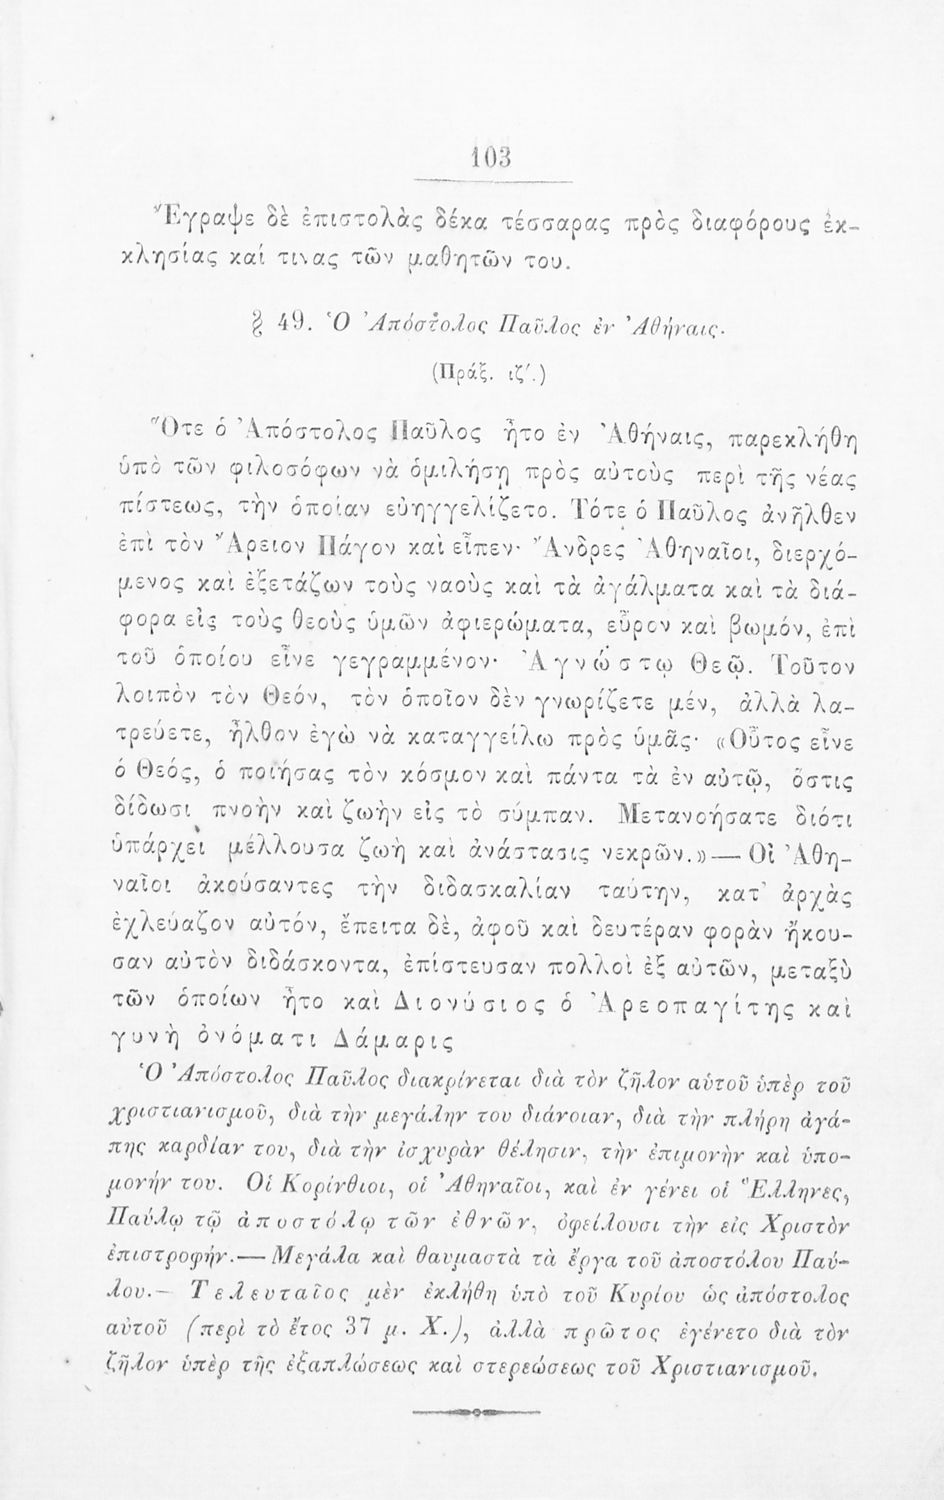 103
Ἔγραψε δὲ ἐπιστολὰς δέκα τέσσαρας πρὸς διαφόρους ἐκ-
κλησίας καί τινας τῶν μαθητῶν του.
§ 49. Ὁ Ἀπόστολος Παῦλος ἐν Ἀθήναις.
(Πράξ. ιζ΄.)
Ὅτε ὁ Ἀπόστολος Παῦλος ἦτο ἐν Ἀθήναις, παρεκλήθη
ὑπὸ τῶν φιλοσόφων νὰ ὁμιλήσῃ πρὸς αὐτοὺς περὶ τῆς νέας
πίστεως, τὴν ὁποίαν εὐηγγελίζετο. Τότε ὁ Παῦλος ἀνῆλθεν
ἐπὶ τὸν Ἄρειον Πάγον καὶ εἶπεν· Ἄνδρες Ἀθηναῖοι, διερχό-
μενος καὶ ἐξετάζων τοὺς ναοὺς καὶ τὰ ἀγάλματα καὶ τὰ διά-
φορα εἰς τοὺς θεοὺς ὑμῶν ἀφιερώματα, εὗρον καὶ βωμόν, ἐπὶ
τοῦ ὁποίου εἶνε γεγραμμένον· Ἀγνώστῳ Θεῷ. Τοῦτον
λοιπὸν τὸν Θεόν, τὸν ὁποῖον δὲν γνωρίζετε μέν, ἀλλὰ λα-
τρεύετε, ἦλθον ἐγὼ νὰ καταγγείλω πρὸς ὑμᾶς· «Οὗτος εἶνε
ὁ Θεός, ὁ ποιήσας τὸν κόσμον καὶ πάντα τὰ ἐν αὐτῷ, ὅστις
δίδωσι πνοὴν καὶ ζωὴν εἰς τὸ σύμπαν. Μετανοήσατε διότι
ὑπάρχει μέλλουσα ζωὴ καὶ ἀνάστασις νεκρῶν.»— Οἱ Ἀθη-
ναῖοι ἀκούσαντες τὴν διδασκαλίαν ταύτην, κατ' ἀρχὰς
ἐχλεύαζον αὐτόν, ἔπειτα δέ, ἀφοῦ καὶ δευτέραν φορὰν ἤκου-
σαν αὐτὸν διδάσκοντα, ἐπίστευσαν πολλοὶ ἐξ αὐτῶν, μεταξὺ
τῶν ὁποίων ἦτο καὶ Διονύσιος ὁ Ἀρεοπαγίτης καὶ
γυνὴ ὀνόματι Δάμαρις
Ὁ Ἀπόστολος Παῦλος διακρίνεται διὰ τὸν ζῆλον αὐτοῦ ὑπὲρ τοῦ
χριστιανισμοῦ, διὰ τὴν μεγάλην του διάνοιαν, διὰ τὴν πλήρη ἀγά-
πης καρδίαν του, διὰ τὴν ἰσχυρὰν θέλησιν, τὴν ἐπιμονὴν καὶ ὑπο-
μονήν του. Οἱ Κορίνθιοι, οἱ Ἀθηναῖοι, καὶ ἐν γένει οἱ Ἕλληνες,
Παύλῳ τῷ ἀποστόλῳ τῶν ἐθνῶν, ὀφείλουσι τὴν εἰς Χριστὸν
ἐπιστροφήν.— Μεγάλα καὶ θαυμαστὰ τὰ ἔργα τοῦ ἀποστόλου Παύ-
λου.— Τελευταῖος μὲν ἐκλήθη ὑπὸ τοῦ Κυρίου ὡς ἀπόστολος
αὐτοῦ (περὶ τὸ ἔτος 37 μ. Χ.), ἀλλὰ πρῶτος ἐγένετο διὰ τὸν
ζῆλον ὑπὲρ τῆς ἐξαπλώσεως καὶ στερεώσεως τοῦ Χριστιανισμοῦ.